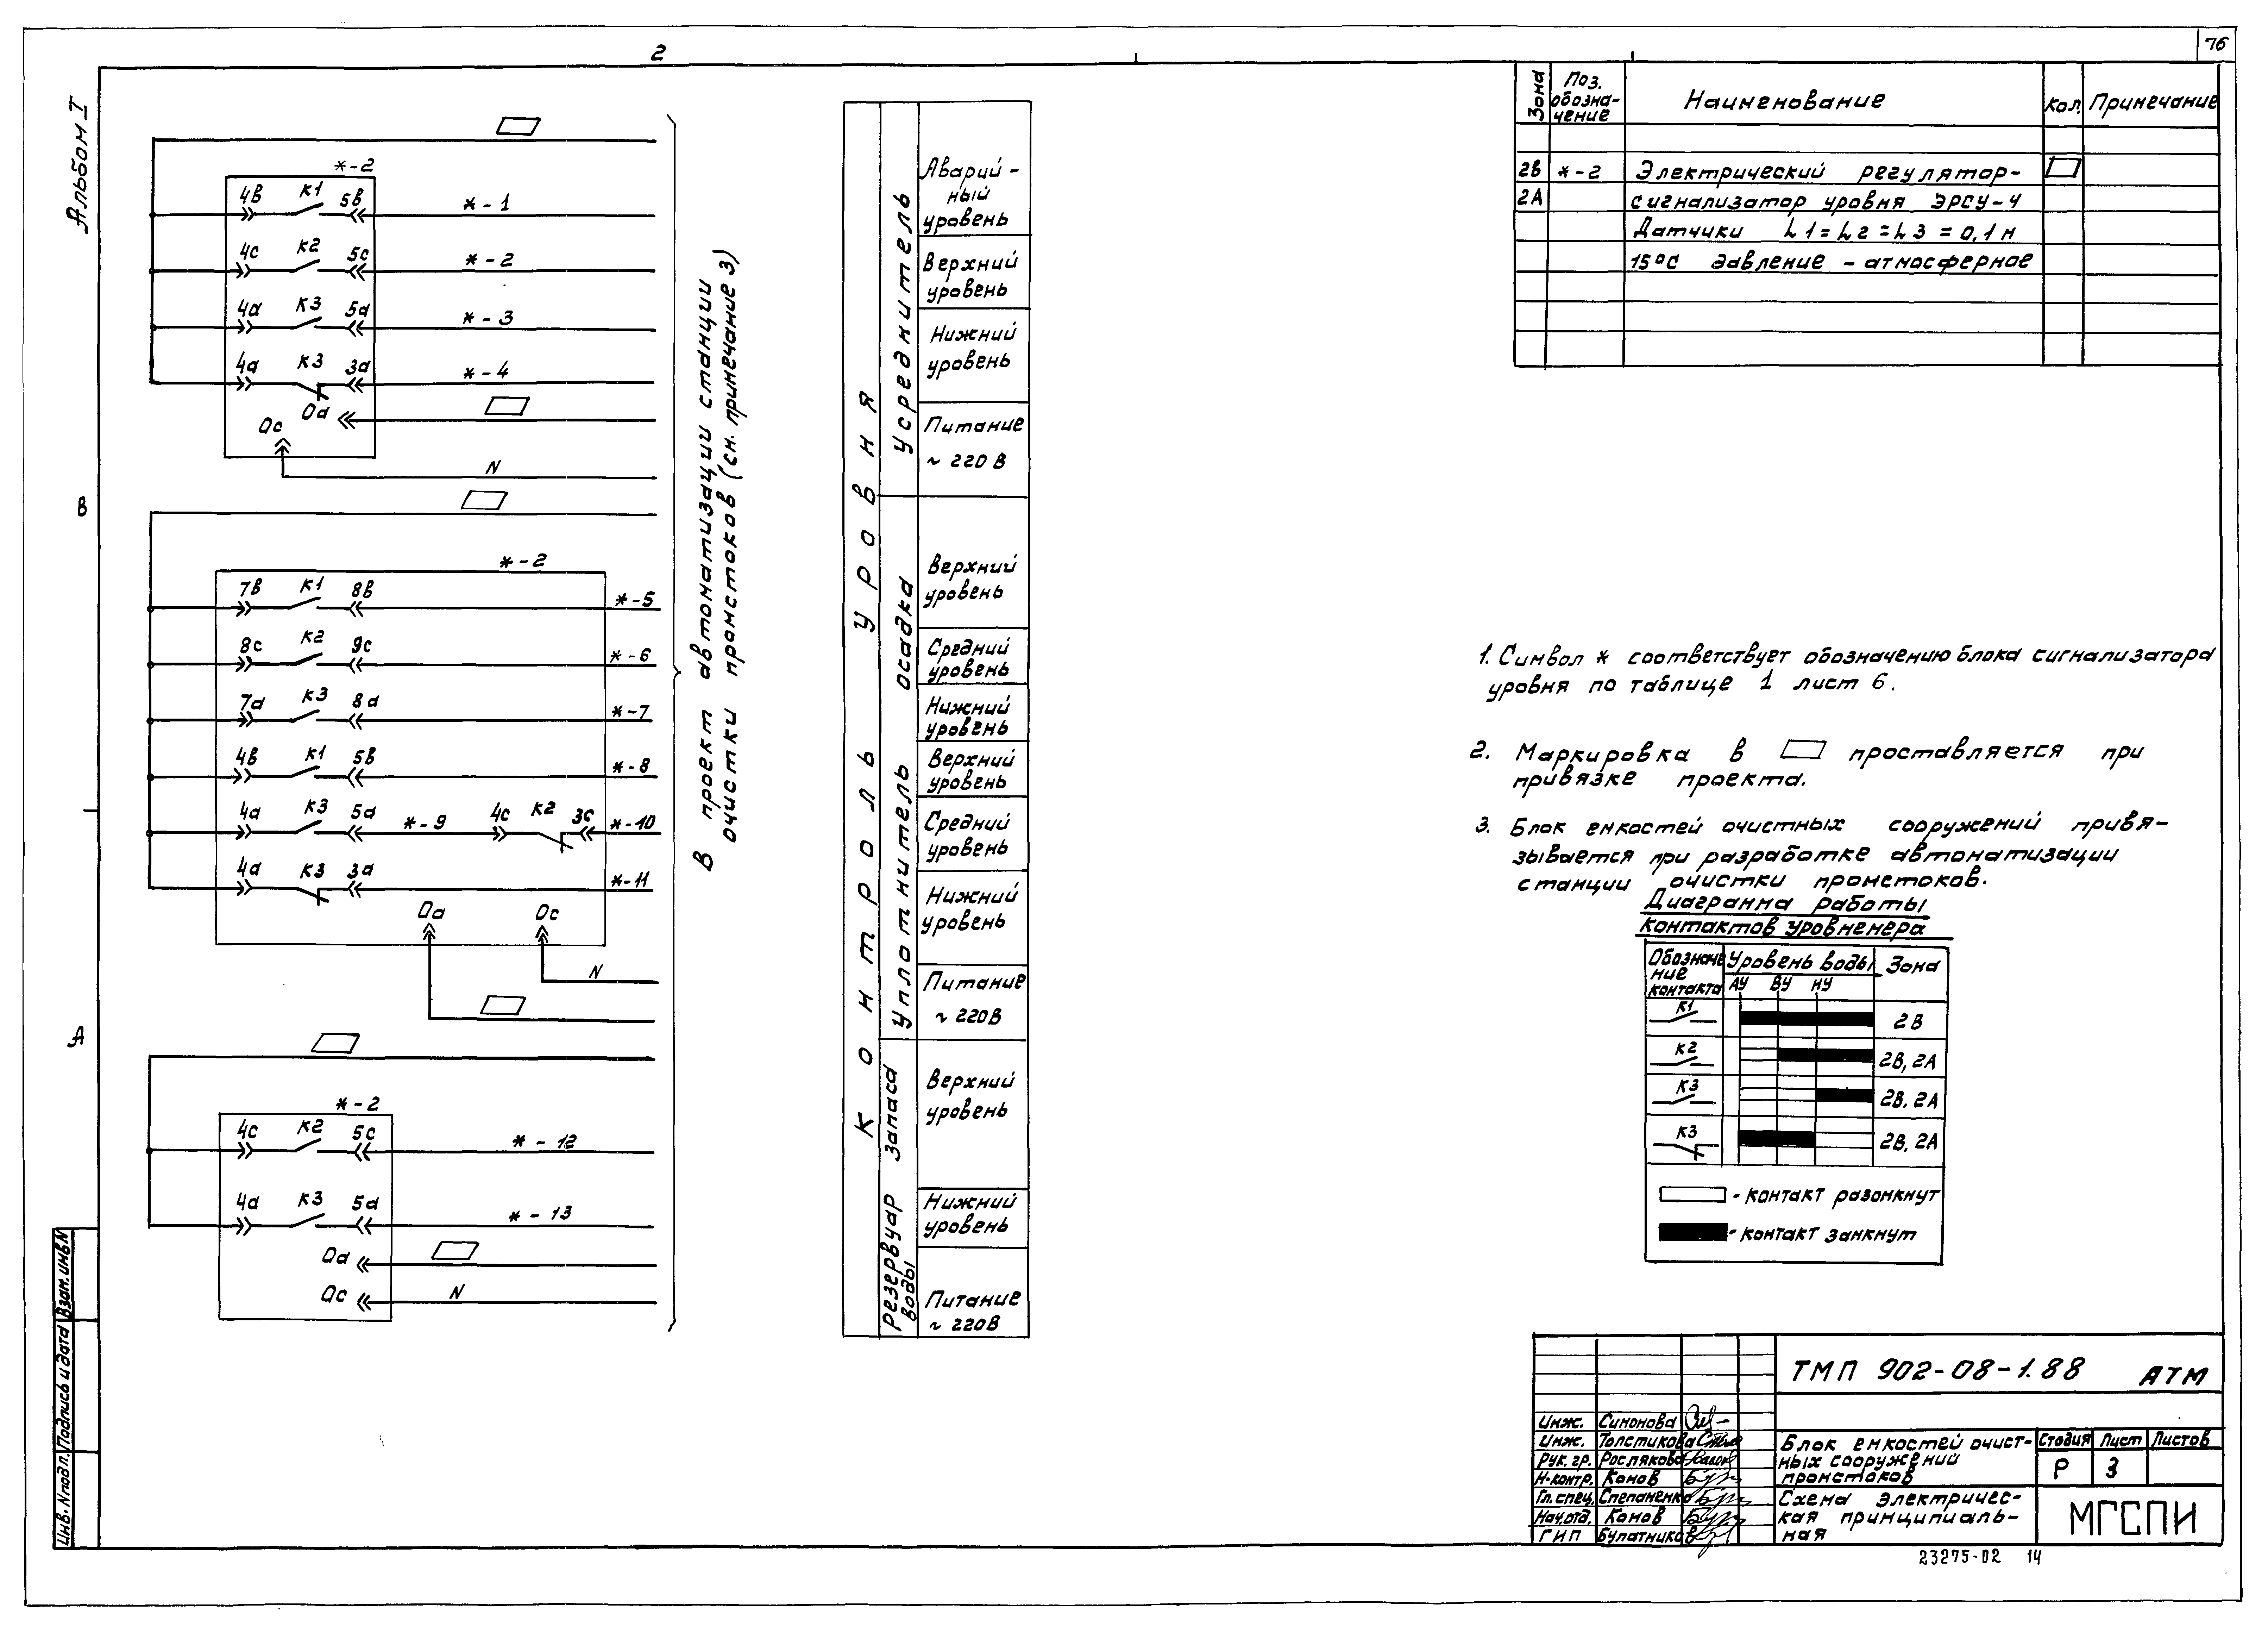 76
2
Альбом I
В
А
*-2
4в К1 5в *-1
4с К2 5с *-2
4d К3 5d *-3
4d К3 3d *-4
0d
0с
N
*-2
7в К1 8в *-5
8с К2 9с *-6
7d К3 8d *-7
4в К1 5в *-8
4d К3 5d *-9 4с К2 3с *-10
4d К3 3d *-11
0d 0с
N
*-2
4с К2 5с *-12
4d К3 5d *-13
0d
0с N
В проект автоматизации станции
очистки промстоков (см. примечание 3)
Контроль уровня
Усреднитель
Аварий-
ный
уровень
Верхний
уровень
Нижний
уровень
Питание
~ 220 В
Уплотнитель осадка
Верхний
уровень
Средний
уровень
Нижний
уровень
Верхний
уровень
Средний
уровень
Нижний
уровень
Питание
~ 220В
Резервуар запаса
воды
Верхний
уровень
Нижний
уровень
Питание
~ 220В
Зона
Поз.
обозна-
чение
Наименование
Кол.
Примечание
2В *-2 Электрический регулятор-
2А сигнализатор уровня ЭРСУ-4
Датчики L1=L2=L3=0,1м
15°С давление - атмосферное
1. Символ * соответствует обозначению блока сигнализатора
уровня по таблице 1 лист 6.
2. Маркировка в проставляется при
привязке проекта.
3. Блок емкостей очистных сооружений привя-
зывается при разработке автоматизации
станции очистки промстоков.
Диаграмма работы
контактов уровнемера
Обозначе
ние
контакта
Уровень воды
АУ ВУ НУ
Зона
К1 2В
К2 2В, 2А
К3 2В. 2А
К3 2В, 2А
- контакт разомкнут
- контакт замкнут
ТМП 902-08-1.88 АТМ
Инж. Симонова
Инж. Толстикова
Рук. гр. Рослякова
Н-контр. Конов
Гл. спец. Степаненко
Нач.отд. Конов
ГИП Булатников
Блок емкостей очист-
ных сооружений
промстоков
Стадия Лист Листов
Р 3
Схема электричес-
кая принципиаль-
ная
МГСПИ
23275-02 14
Инв. №подл. Подпись и дата Взам.инв№